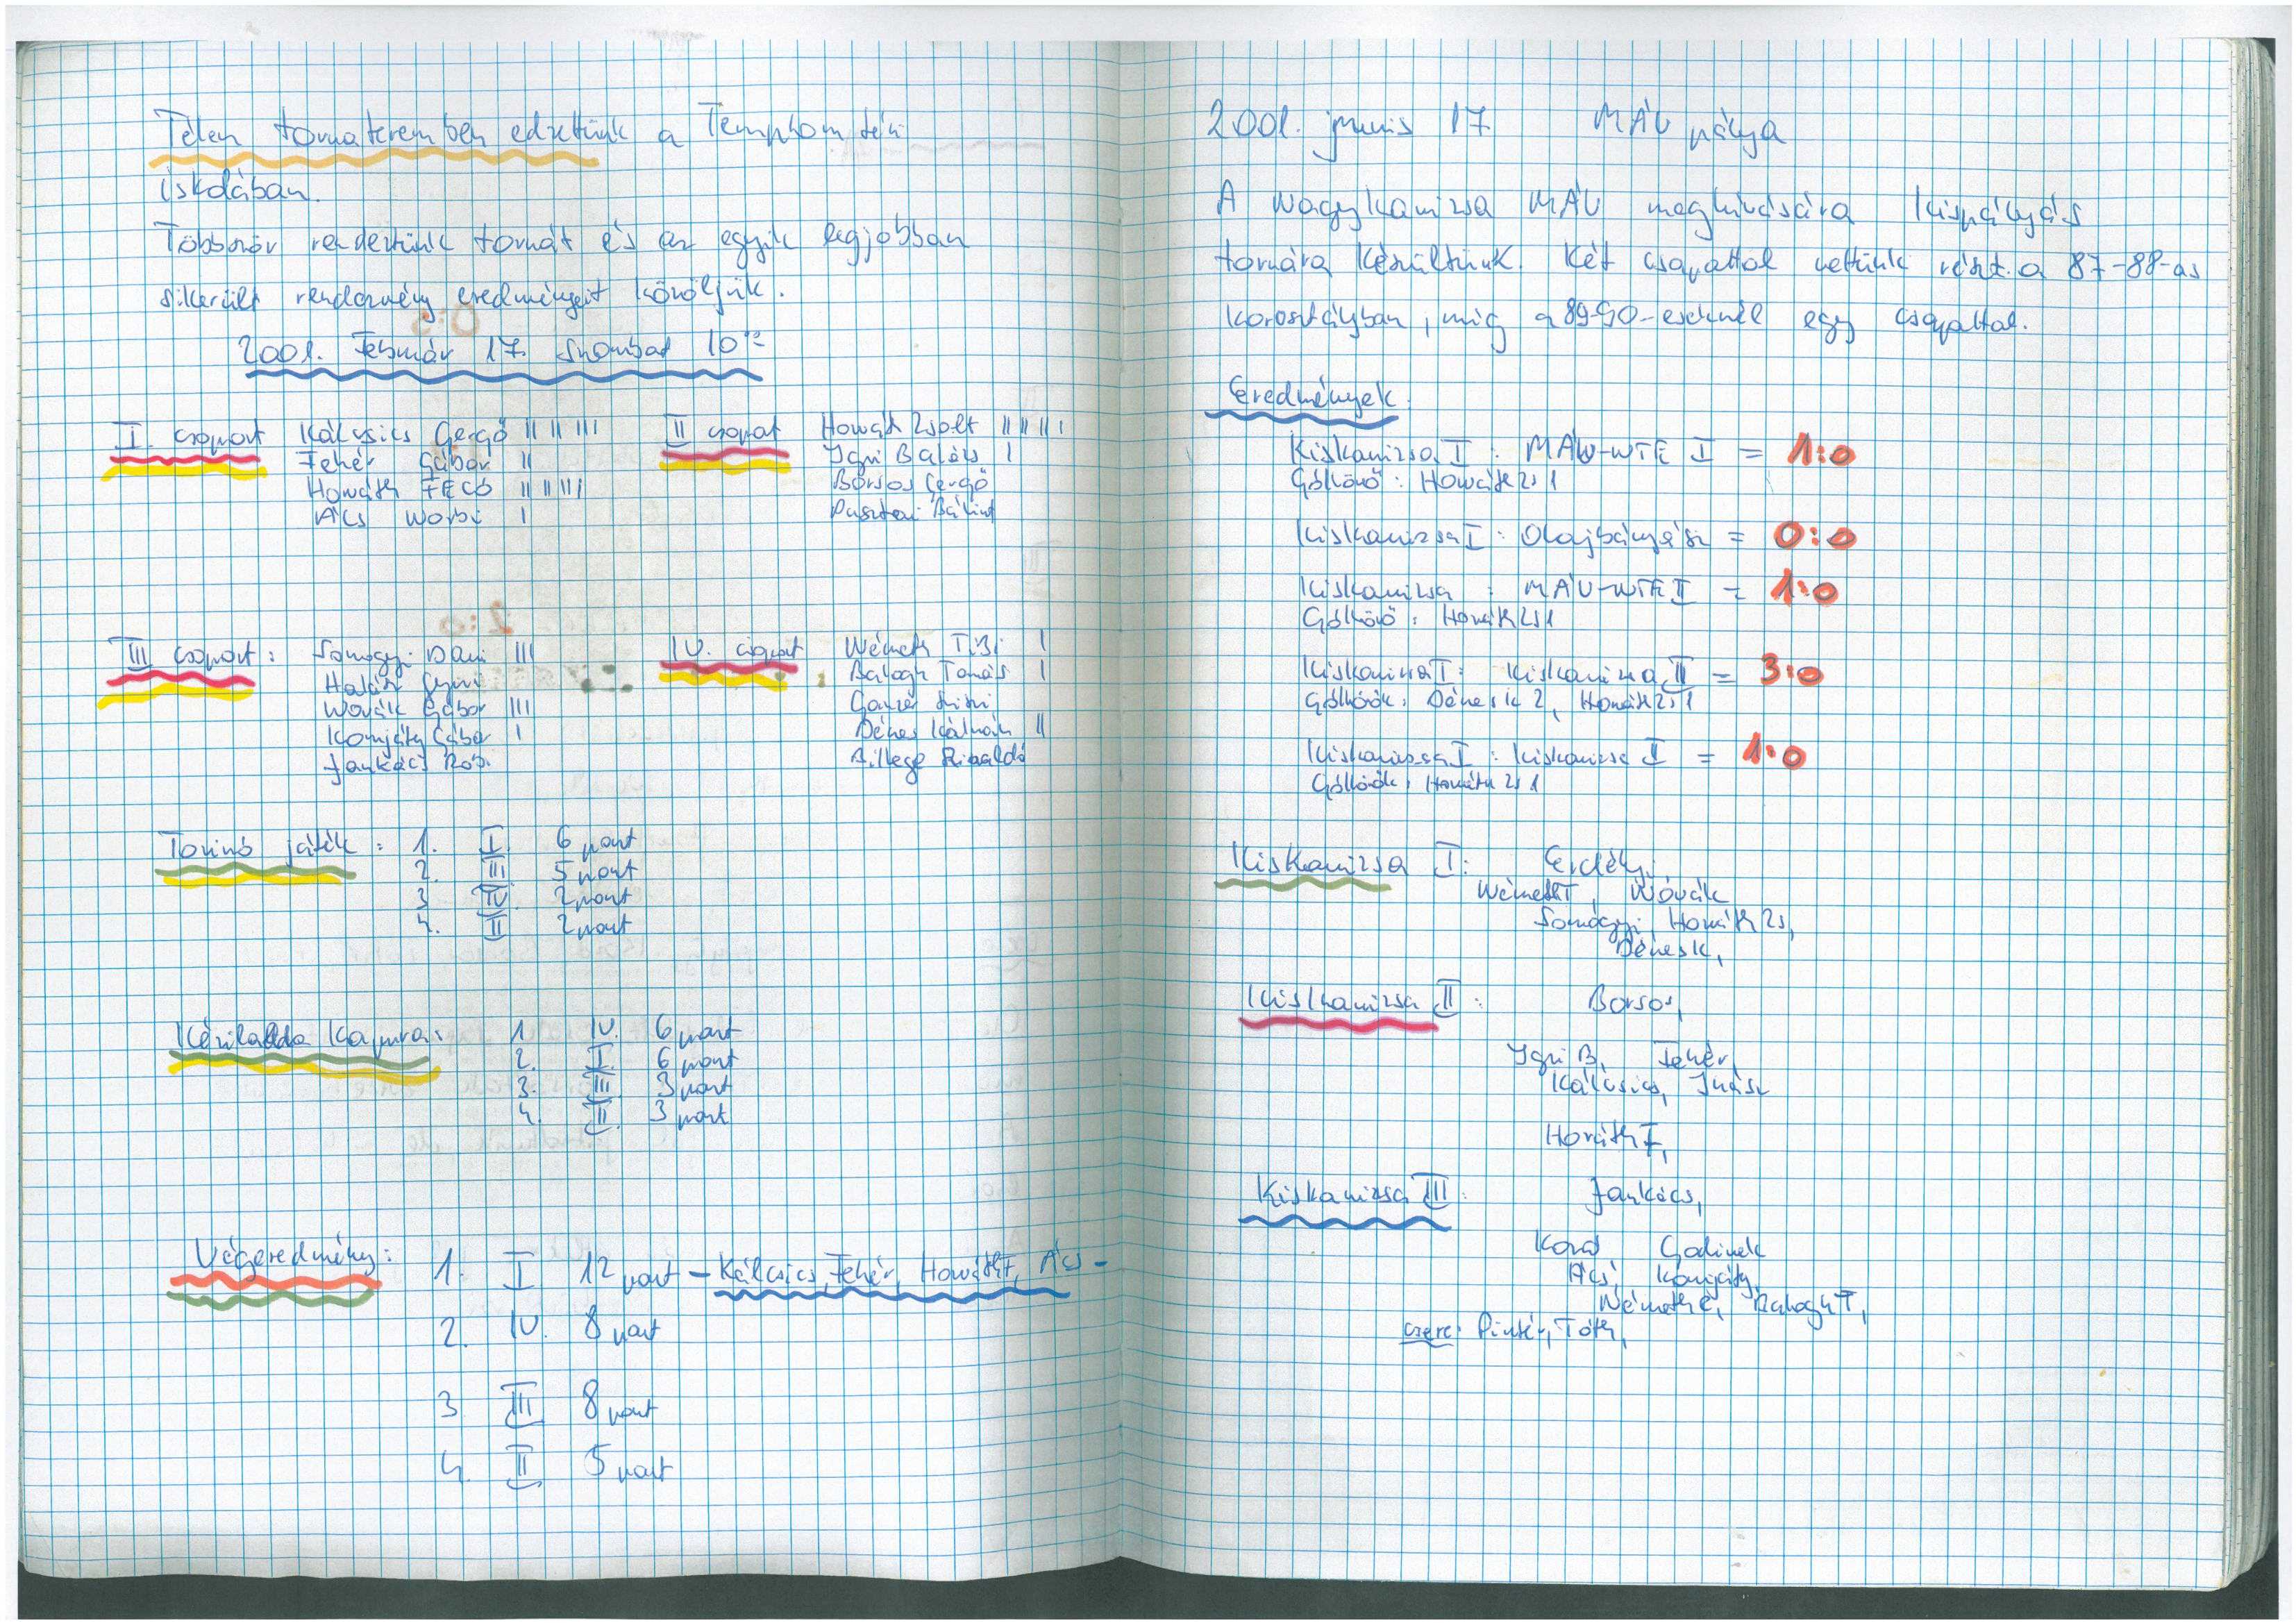 Télen tornateremben edzettünk a Templom téri
iskolában.
Többször rendeztünk tornát és az egyik legjobban
sikerült rendezvény eredményeit közöljük.
2001. Február 17. szombat 10°°
I. csoport Kálcsics Gergő II II III
Fehér Gábor II
Horváth FECÓ II II III
Ács Norbi I
II csoport Horváth Zsolt II II II I
Igri Balázs I
Borsos Gergő
Pásztori Bálint
III csoport: Somogyi Dani III
Halász Gyuri
Novák Gábor III
Komjáty Gábor I
Jankács Róbi
IV. csoport Németh Tibi I
Balogh Tamás I
Dénes Kálmán II
Billege Rivaldó
Torinó játék: 1. I. 6 pont
2. III 5 pont
3 IV. 2 pont
4. II 2 pont
Kézilabda kapura: 1. IV. 6 pont
2. I. 6 pont
3. III. 3 pont
4. II. 3 pont
Végeredmény: 1. I 12 pont - Kálcsics, Fehér, Horváth F, Ács -
2. IV. 8 pont
3 III 8 pont
4. II 5 pont
2001. junius 17 MÁV pálya
A Nagykanizsa MÁV meghívására kispályás
tornára készültünk. Két csapattal vettünk részt a 87-88-as
korosztályban, míg a 89-90-eseknél egy csapattal.
Eredmények:
Kiskanizsa I : MÁV-NTE I = 1:0
Góllövő: Horváth Zs 1
Kiskanizsa I : Olajbányász = 0:0
Kiskanizsa : MÁV-NTE II = 1:0
Góllövő: Horváth Zs 1
Kiskanizsa I : Kiskanizsa II = 3:0
Góllövők: Dénes K 2, Horváth Zs 1
Kiskanizsa I : Kiskanizsa II = 1:0
Góllövők: Horváth Zs 1
Kiskanizsa I: Erdélyi
Németh T, Novák
Somogyi, Horváth Zs,
Dénes K,
Kiskanizsa II: Borsos,
Igri B, Fehér,
Kálcsics, Juász
Horváth F,
Kiskanizsa III: Jankács,
Godinek
Ács, Komjáty,
Németh E, Balogh T,
csere: Pintér, Tóth,